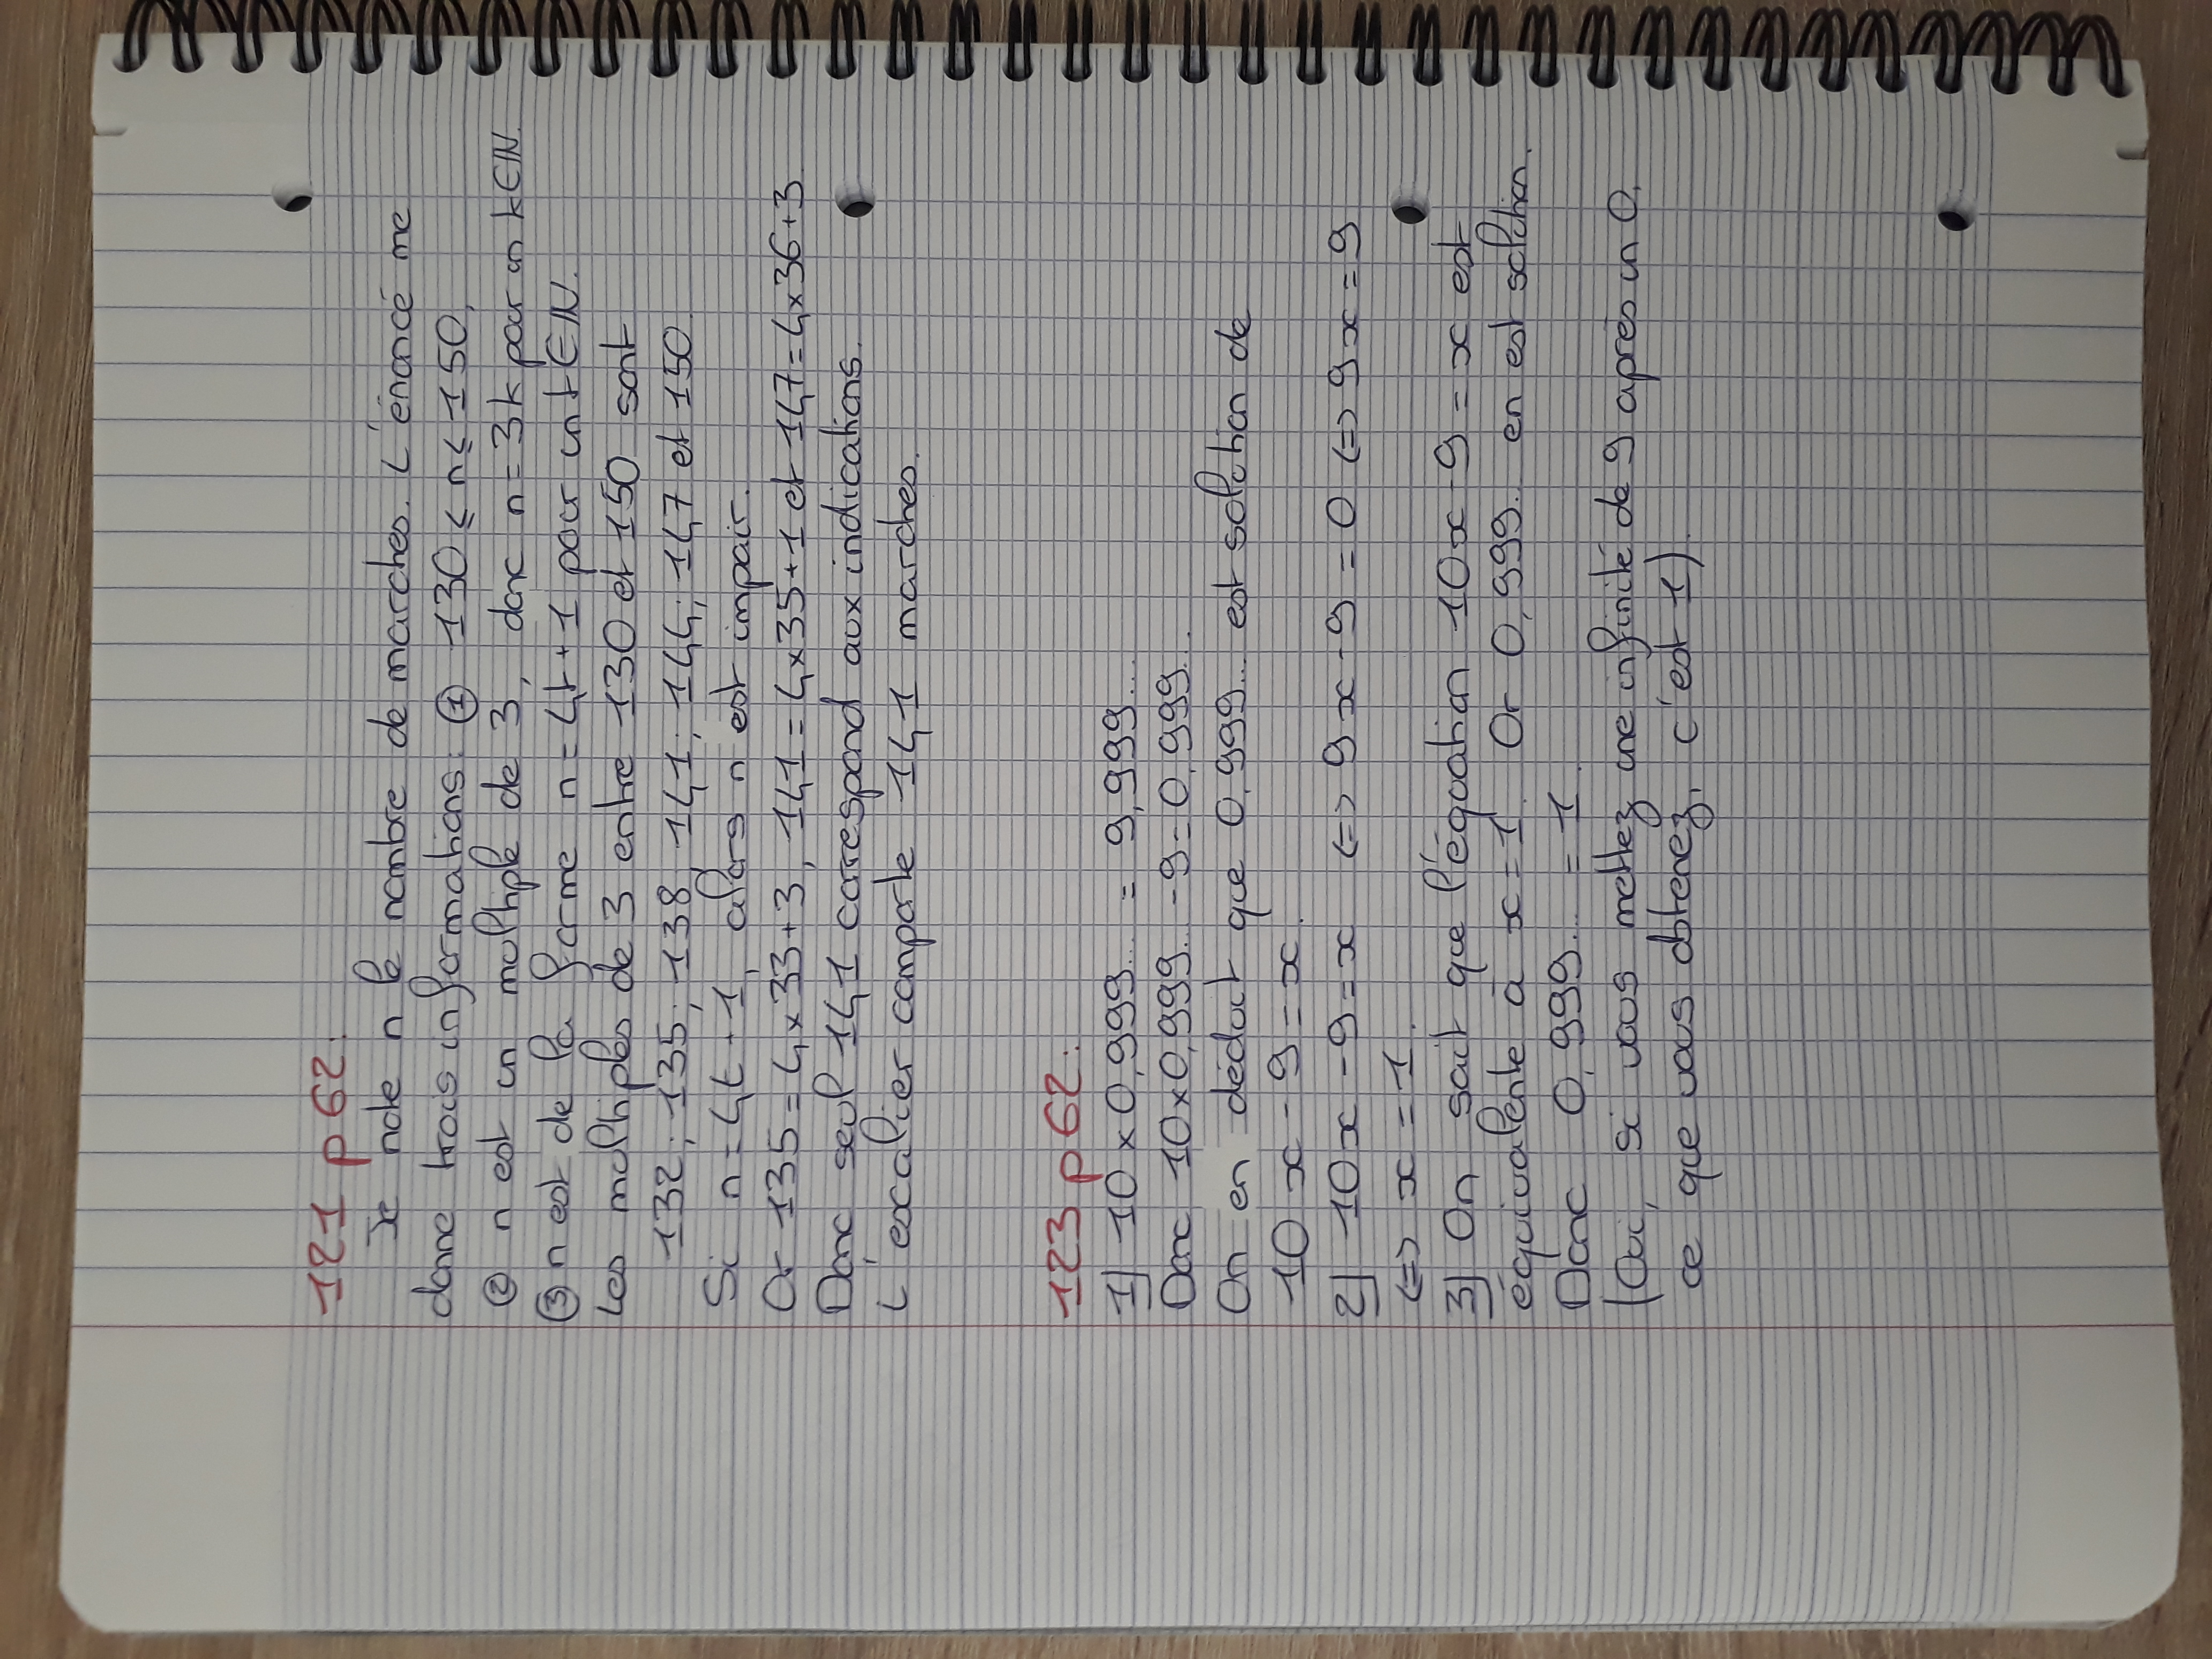 121 p 62:
Je note n le nombre de marches. L'énoncé me
donne trois informations: ① 130 ⩽ n ⩽ 150,
② n est un multiple de 3, donc n = 3k pour un k∈ℕ.
③ n est de la forme n = 4t + 1 pour un t∈ℕ.
Les multiples de 3 entre 130 et 150 sont
132; 135; 138; 141; 144; 147 et 150.
Si n = 4t + 1, alors n est impair.
Or 135 = 4 × 33 + 3, 141 = 4 × 35 + 1 et 147 = 4 × 36 + 3
Donc seul 141 correspond aux indications.
L'escalier comporte 141 marches.
123 p 62:
1) 10 × 0,999... = 9,999...
Donc 10 × 0,999... - 9 = 0,999...
On en déduit que 0,999... est solution de
10 x - 9 = x.
2) 10x - 9 = x <=> 9x - 9 = 0 <=> 9x = 9
<=> x = 1.
3) On sait que l'équation 10x - 9 = x est
équivalente à x = 1. Or 0,999... en est solution.
Donc 0,999... = 1.
(Oui, si vous mettez une infinité de 9 après un 0,
ce que vous obtenez, c'est 1).